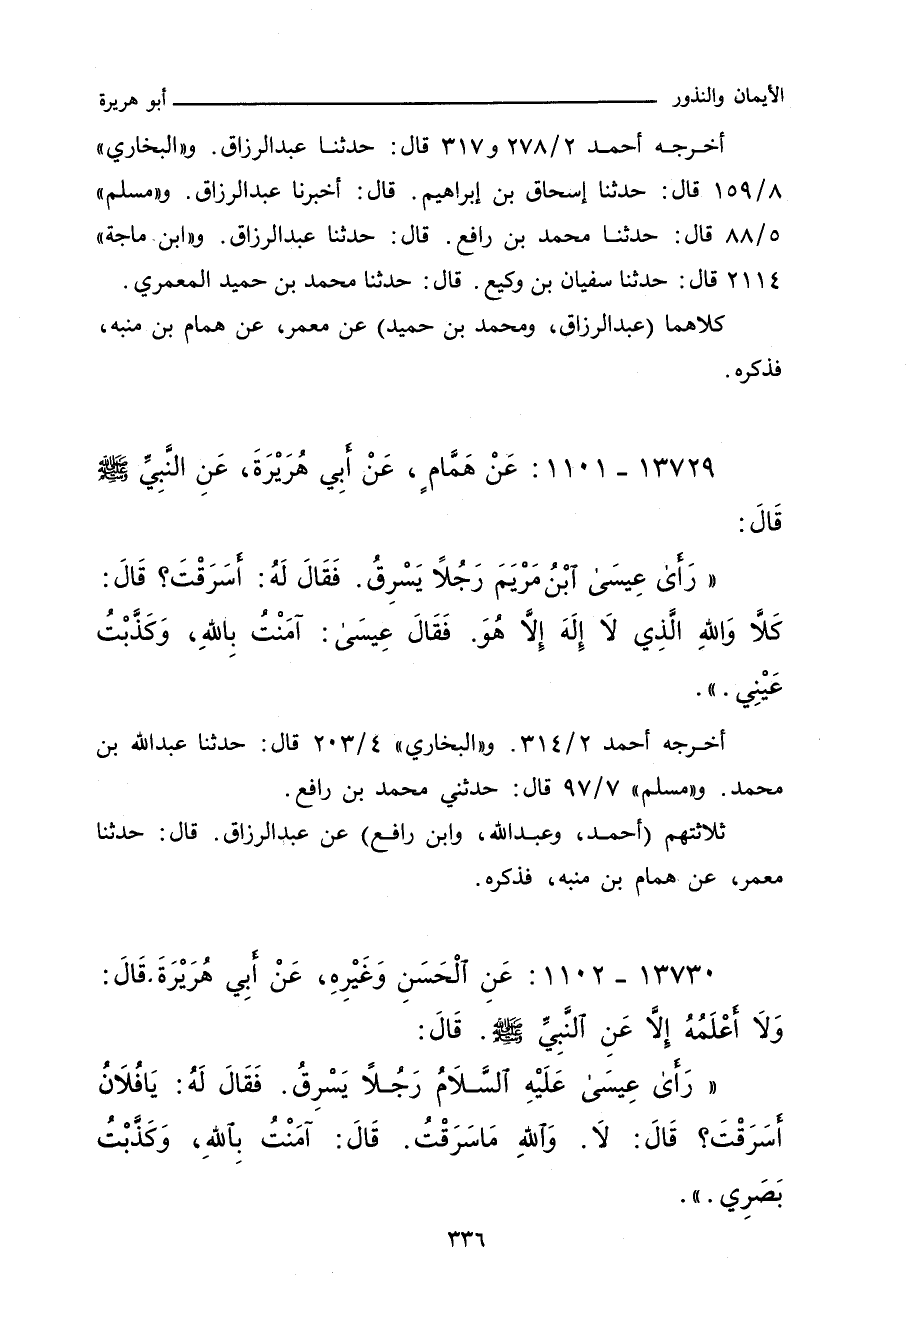 الأيمان والنذور ــــــــــــــــــ أبو هريرة
أخرجه أحمد ٢/٢٧٨ و٣١٧ قال: حدثنا عبدالرزاق. و«البخاري»
٨/١٥٩ قال: حدثنا إسحاق بن إبراهيم. قال: أخبرنا عبدالرزاق. و«مسلم»
٥/٨٨ قال: حدثنا محمد بن رافع. قال: حدثنا عبدالرزاق. و«ابن ماجة»
٢١١٤ قال: حدثنا سفيان بن وكيع. قال: حدثنا محمد بن حميد المعمري.
كلاهما (عبدالرزاق، ومحمد بن حميد) عن معمر، عن همام بن منبه،
فذكره.
١٣٧٢٩ ـ ١١٠١: عَنْ هَمَّامٍ، عَنْ أَبِي هُرَيْرَةَ، عَنِ النَّبِيِّ ﷺ
قَالَ:
« رَأَىٰ عِيسَىٰ ٱبْنُ مَرْيَمَ رَجُلاً يَسْرِقُ. فَقَالَ لَهُ: أَسَرَقْتَ؟ قَالَ:
كَلاَّ وَاللهِ الَّذِي لَا إِلَهَ إِلاَّ هُوَ. فَقَالَ عِيسَىٰ: آمَنْتُ بِاللهِ، وَكَذَّبْتُ
عَيْنِي.».
أخرجه أحمد ٢/٣١٤. و«البخاري» ٤/٢٠٣ قال: حدثنا عبدالله بن
محمد. و«مسلم» ٧/٩٧ قال: حدثني محمد بن رافع.
ثلاثتهم (أحمد، وعبدالله، وابن رافع) عن عبدالرزاق. قال: حدثنا
معمر، عن همام بن منبه، فذكره.
١٣٧٣٠ ـ ١١٠٢: عَنِ ٱلْحَسَنِ وَغَيْرِهِ، عَنْ أَبِي هُرَيْرَةَ.قَالَ:
وَلَا أَعْلَمُهُ إِلاَّ عَنِ ٱلنَّبِيِّ ﷺ. قَالَ:
« رَأَىٰ عِيسَىٰ عَلَيْهِ ٱلسَّلَامُ رَجُلاً يَسْرِقُ. فَقَالَ لَهُ: يَافُلَانُ
أَسَرَقْتَ؟ قَالَ: لَا. وَٱللهِ مَاسَرَقْتُ. قَالَ: آمَنْتُ بِٱللهِ، وَكَذَّبْتُ
بَصَرِي.».
٣٣٦